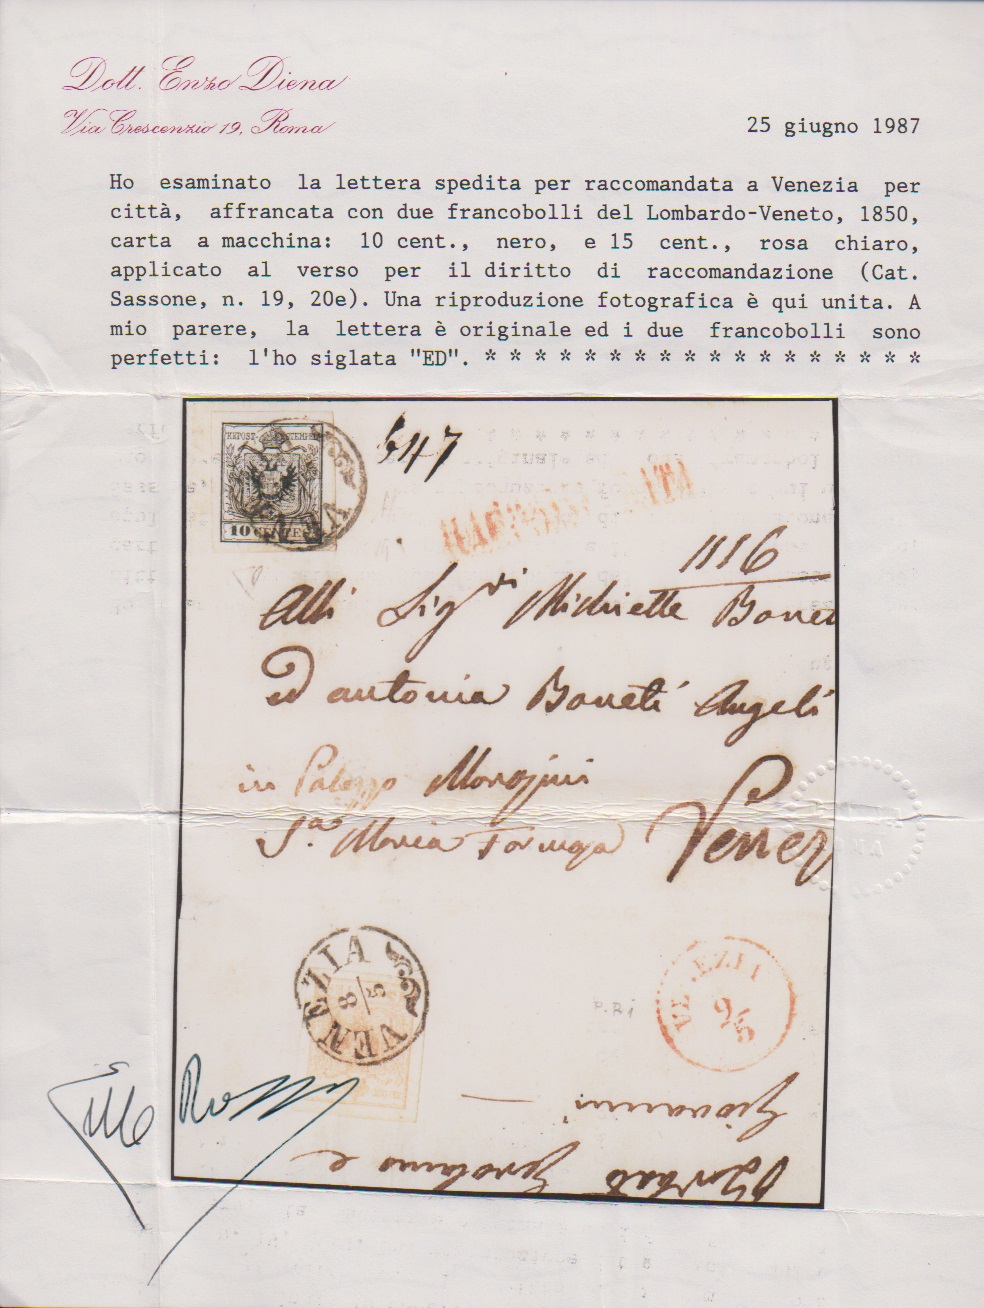 Dott. Enzo Diena
Via Crescenzio 19, Roma
25 giugno 1987
Ho esaminato la lettera spedita per raccomandata a Venezia per
città, affrancata con due francobolli del Lombardo-Veneto, 1850,
carta a macchina: 10 cent., nero, e 15 cent., rosa chiaro,
applicato al verso per il diritto di raccomandazione (Cat.
Sassone, n. 19, 20e). Una riproduzione fotografica è qui unita. A
mio parere, la lettera è originale ed i due francobolli sono
perfetti: l'ho siglata "ED". * * * * * * * * * * * * * * * * * *
10 CENTES
1116
Alli Sigri
ed antonia Boneti Angeli
in Palazzo Morozini
Sa. Maria Formoza
Venez
VENEZIA
8/5
VENEZIA
9/5
P.Bi
Giovanni
Gerolamo e